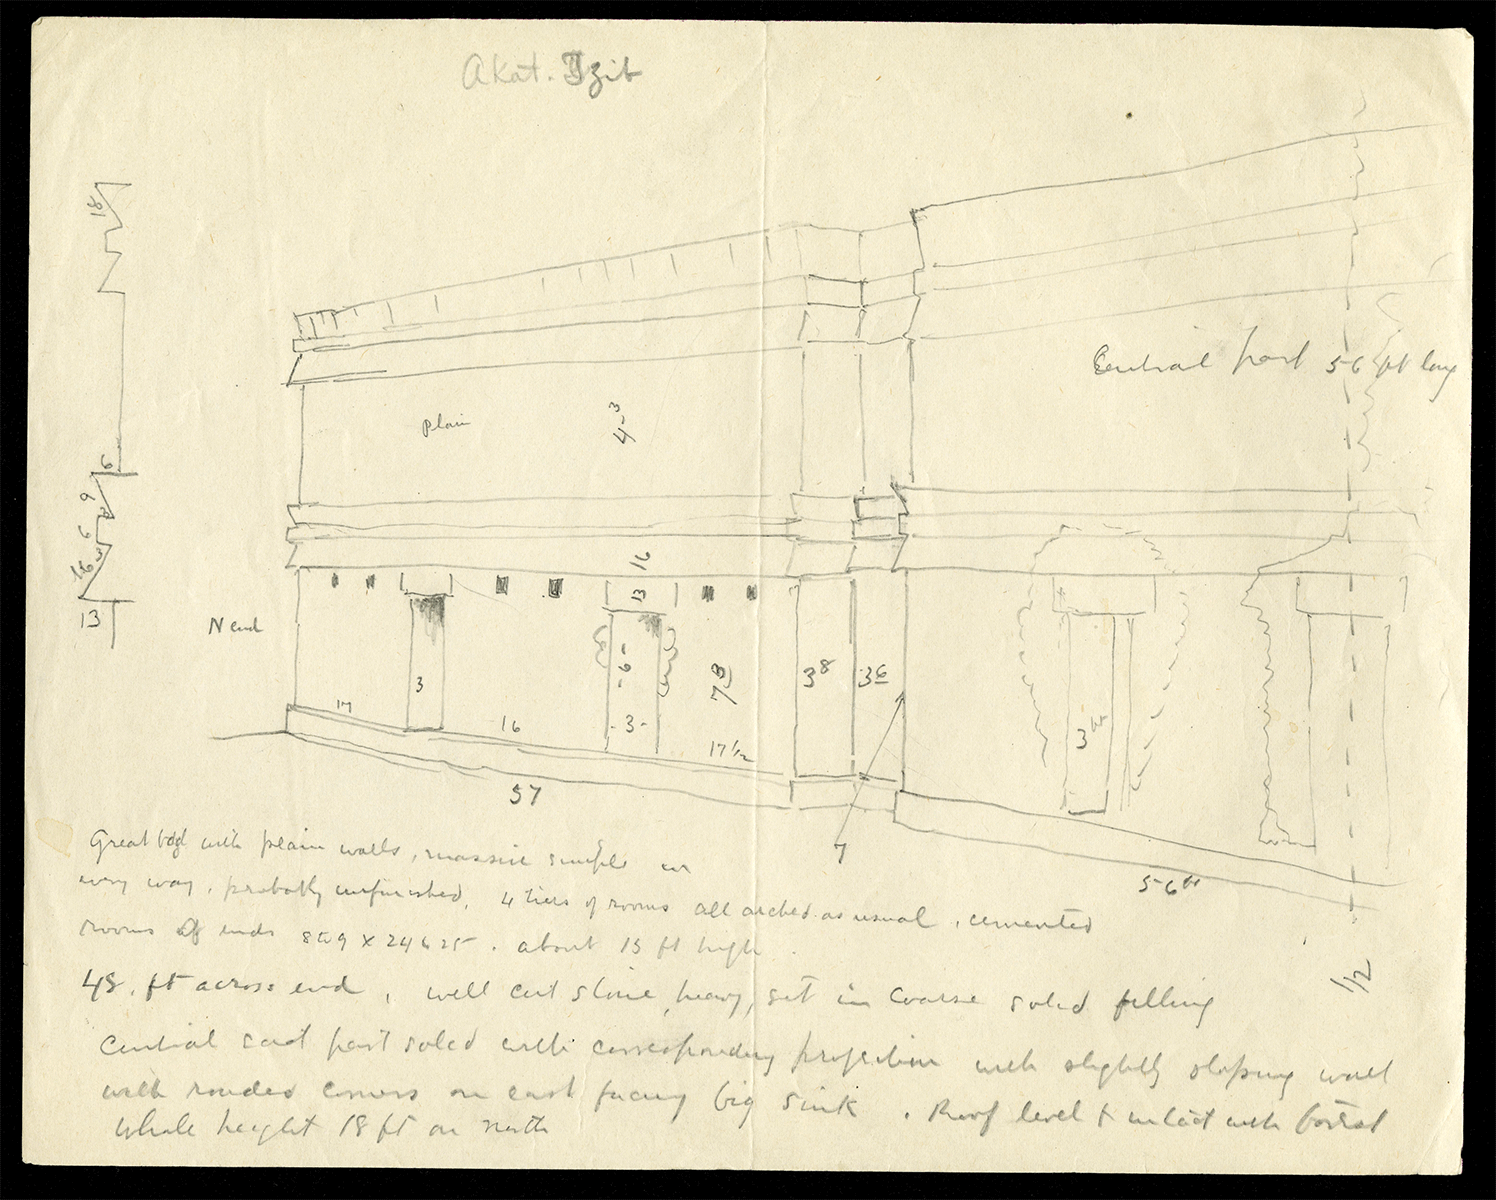 Akat. Dzib
18
Plain
4-3
Central part 56 ft long
6
9
5
3
16
13
N end
16
13
3
-6-
7 8
3 8
3 6
17
16
-3-
17 1/2
3 ft
57
7
56 ft
1/2
Great bld with plain walls, massive simple in
every way, probably unfinished, 4 tiers of rooms all arched as usual, cemented
rooms of ends 8 to 9 x 24 to 25. about 15 ft high.
48. ft across end, well cut stone, heavy, set in coarse solid filling
Central east part solid with corresponding projection with slightly sloping wall
with rounded corners on east facing big sink. Roof level & intact with
whole height 18 ft on north